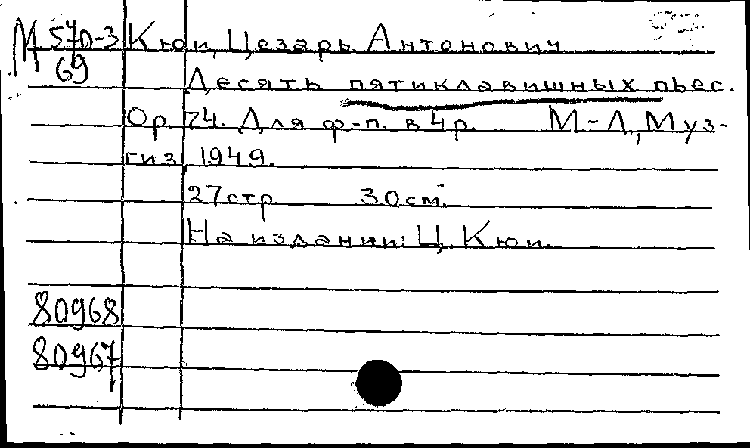 М 570-3 Кюи, Цезарь Антонович
69
Десять пятиклавишных пьес.
Ор. 74. Для ф-п. в 4 р. М-Л, Муз-
гиз, 1949.
27 стр 30 см.
На издании: Ц. Кюи.
80968
80967